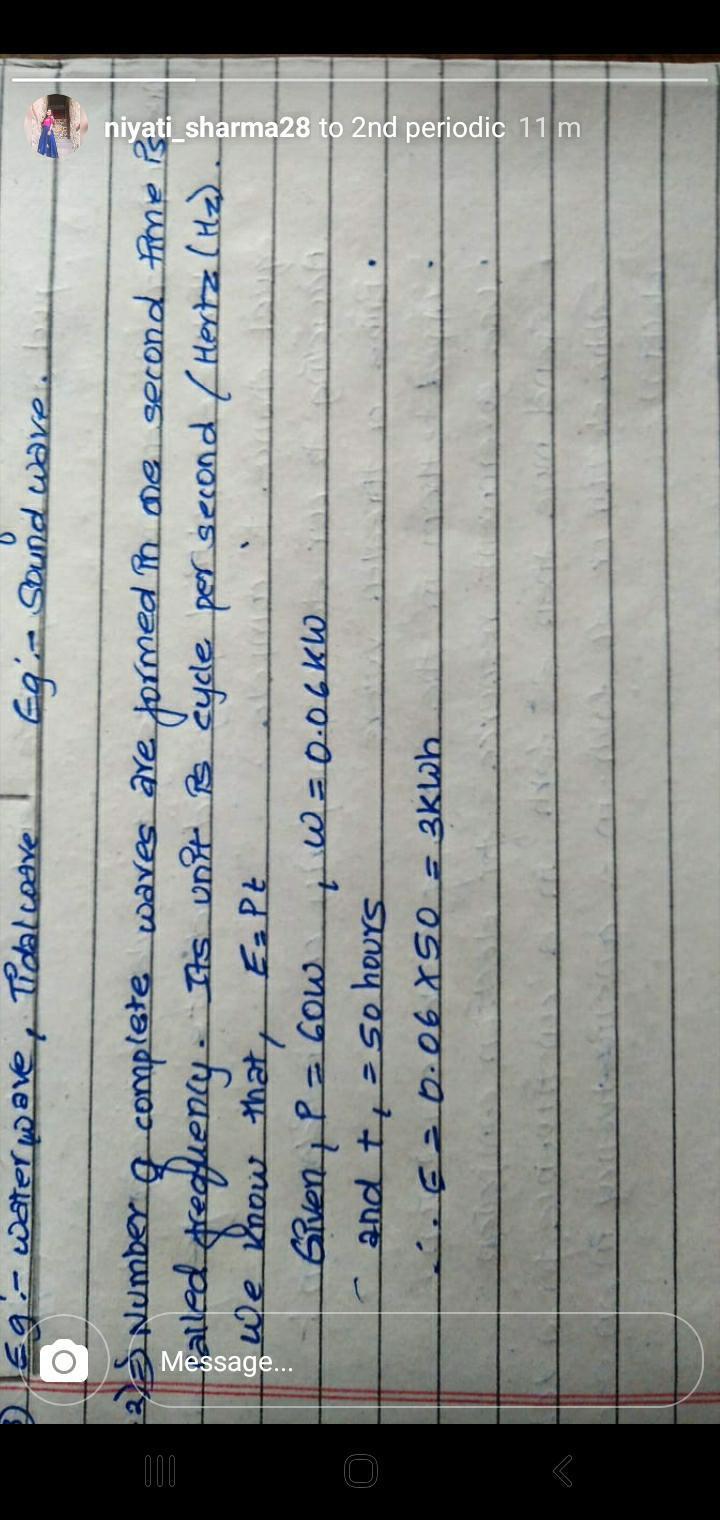 niyati_sharma28 to 2nd periodic 11 m
Eg:- water wave, Tidal wave Eg:- Sound wave.
2) Number of complete waves are formed in one second time is
called frequency. Its unit is cycle per second (Hertz (Hz).
we know that, E=Pt
Given, P = 60W , W = 0.06 KW
and t, = 50 hours
∴ E = 0.06 X 50 = 3KWh
Message...